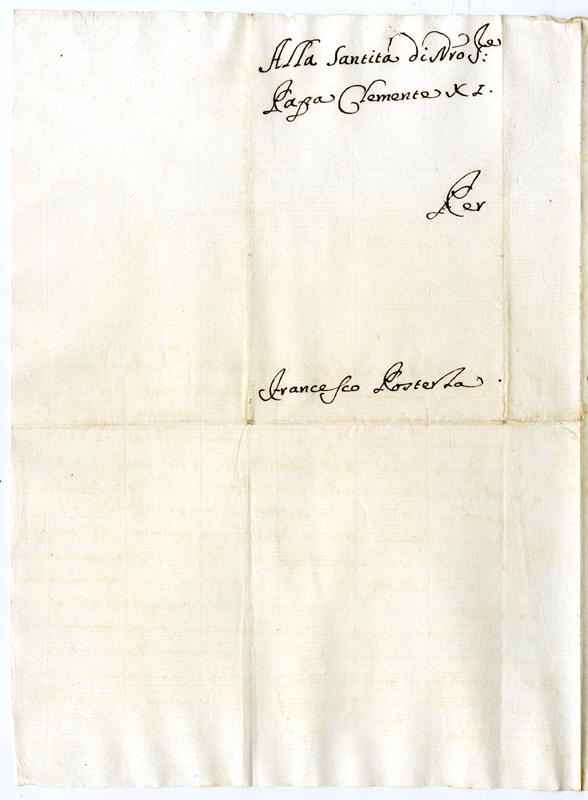 Alla Santità di Nro S.re
Papa Clemente XI.
Per
Francesco Posterla